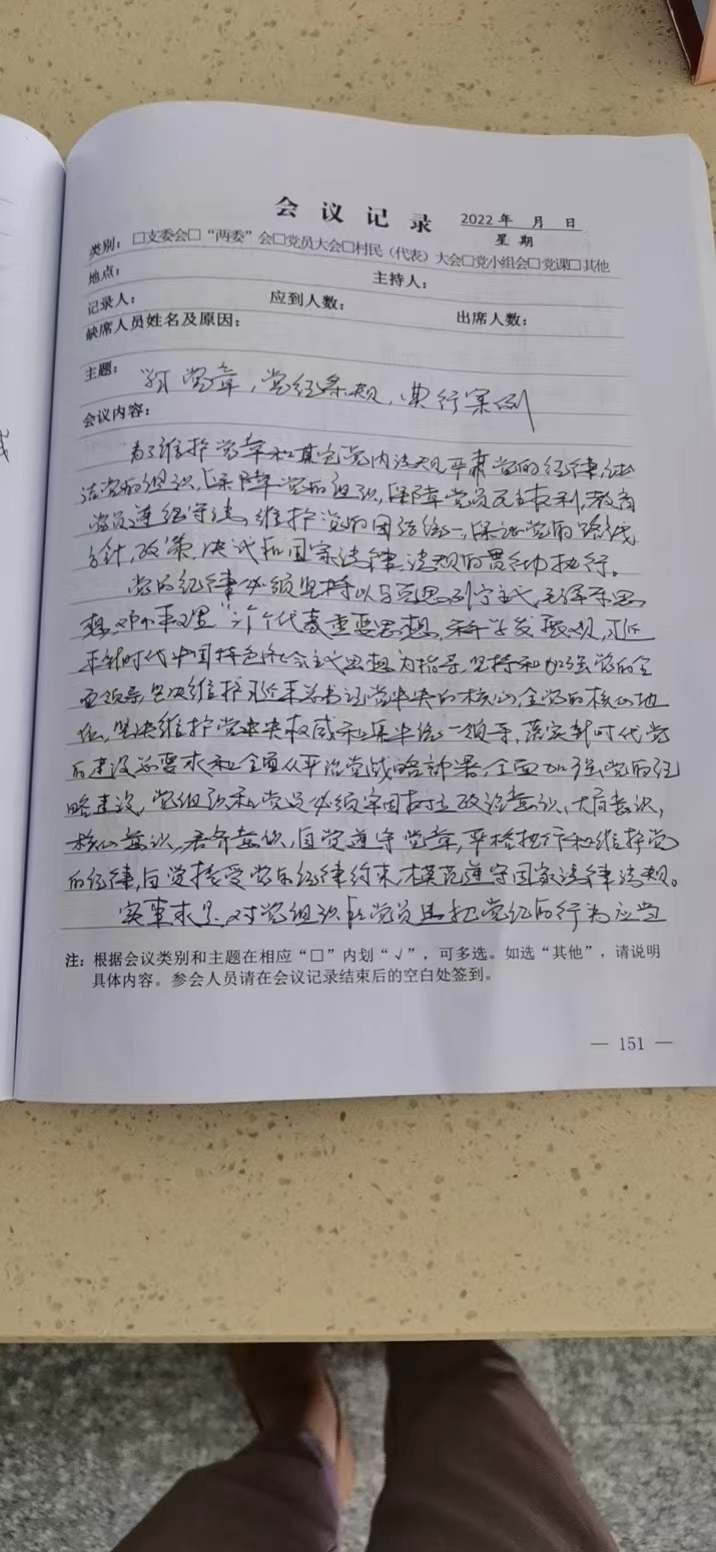 会议记录 2022年 月 日
星期
类别：□支委会□“两委”会□党员大会□村民（代表）大会□党小组会□党课□其他
地点： 主持人：
记录人： 应到人数： 出席人数：
缺席人员姓名及原因：
主题： 学习党章，党纪条规，典行案例
会议内容：
为了维护党章和其它党内法规，严肃党的纪律，纯
洁党的组织，保障党的组织，保障党员民主权利，教育
党员遵纪守法，维护党的团结统一，保证党的路线
方针，政策，决议和国家法律，法规的贯彻执行。
党的纪律必须坚持以马克思列宁主义，毛泽东思
想，邓小平理 “三个代表重要思想，科学发展观，习近
平新时代中国特色社会主义思想为指导，坚持和加强党的全
面领导，坚决维护习近平总书记党中央的核心，全党的核心地
位，坚决维护党中央权威和集中统一领导，落实新时代党
的建设总要求和全面从严治党战略部署，全面加强党的纪
建设，党组织和党员必须牢固树立政治意识，大局意识，
核心意识，看齐意识，自觉遵守党章，严格执行和维护党
的纪律，自觉接受党的纪律约束，模范遵守国家法律法规。
实事求是，对党组织和党员违犯党纪的行为应当
注：根据会议类别和主题在相应“□”内划“√”，可多选。如选“其他”，请说明
具体内容。参会人员请在会议记录结束后的空白处签到。
— 151 —